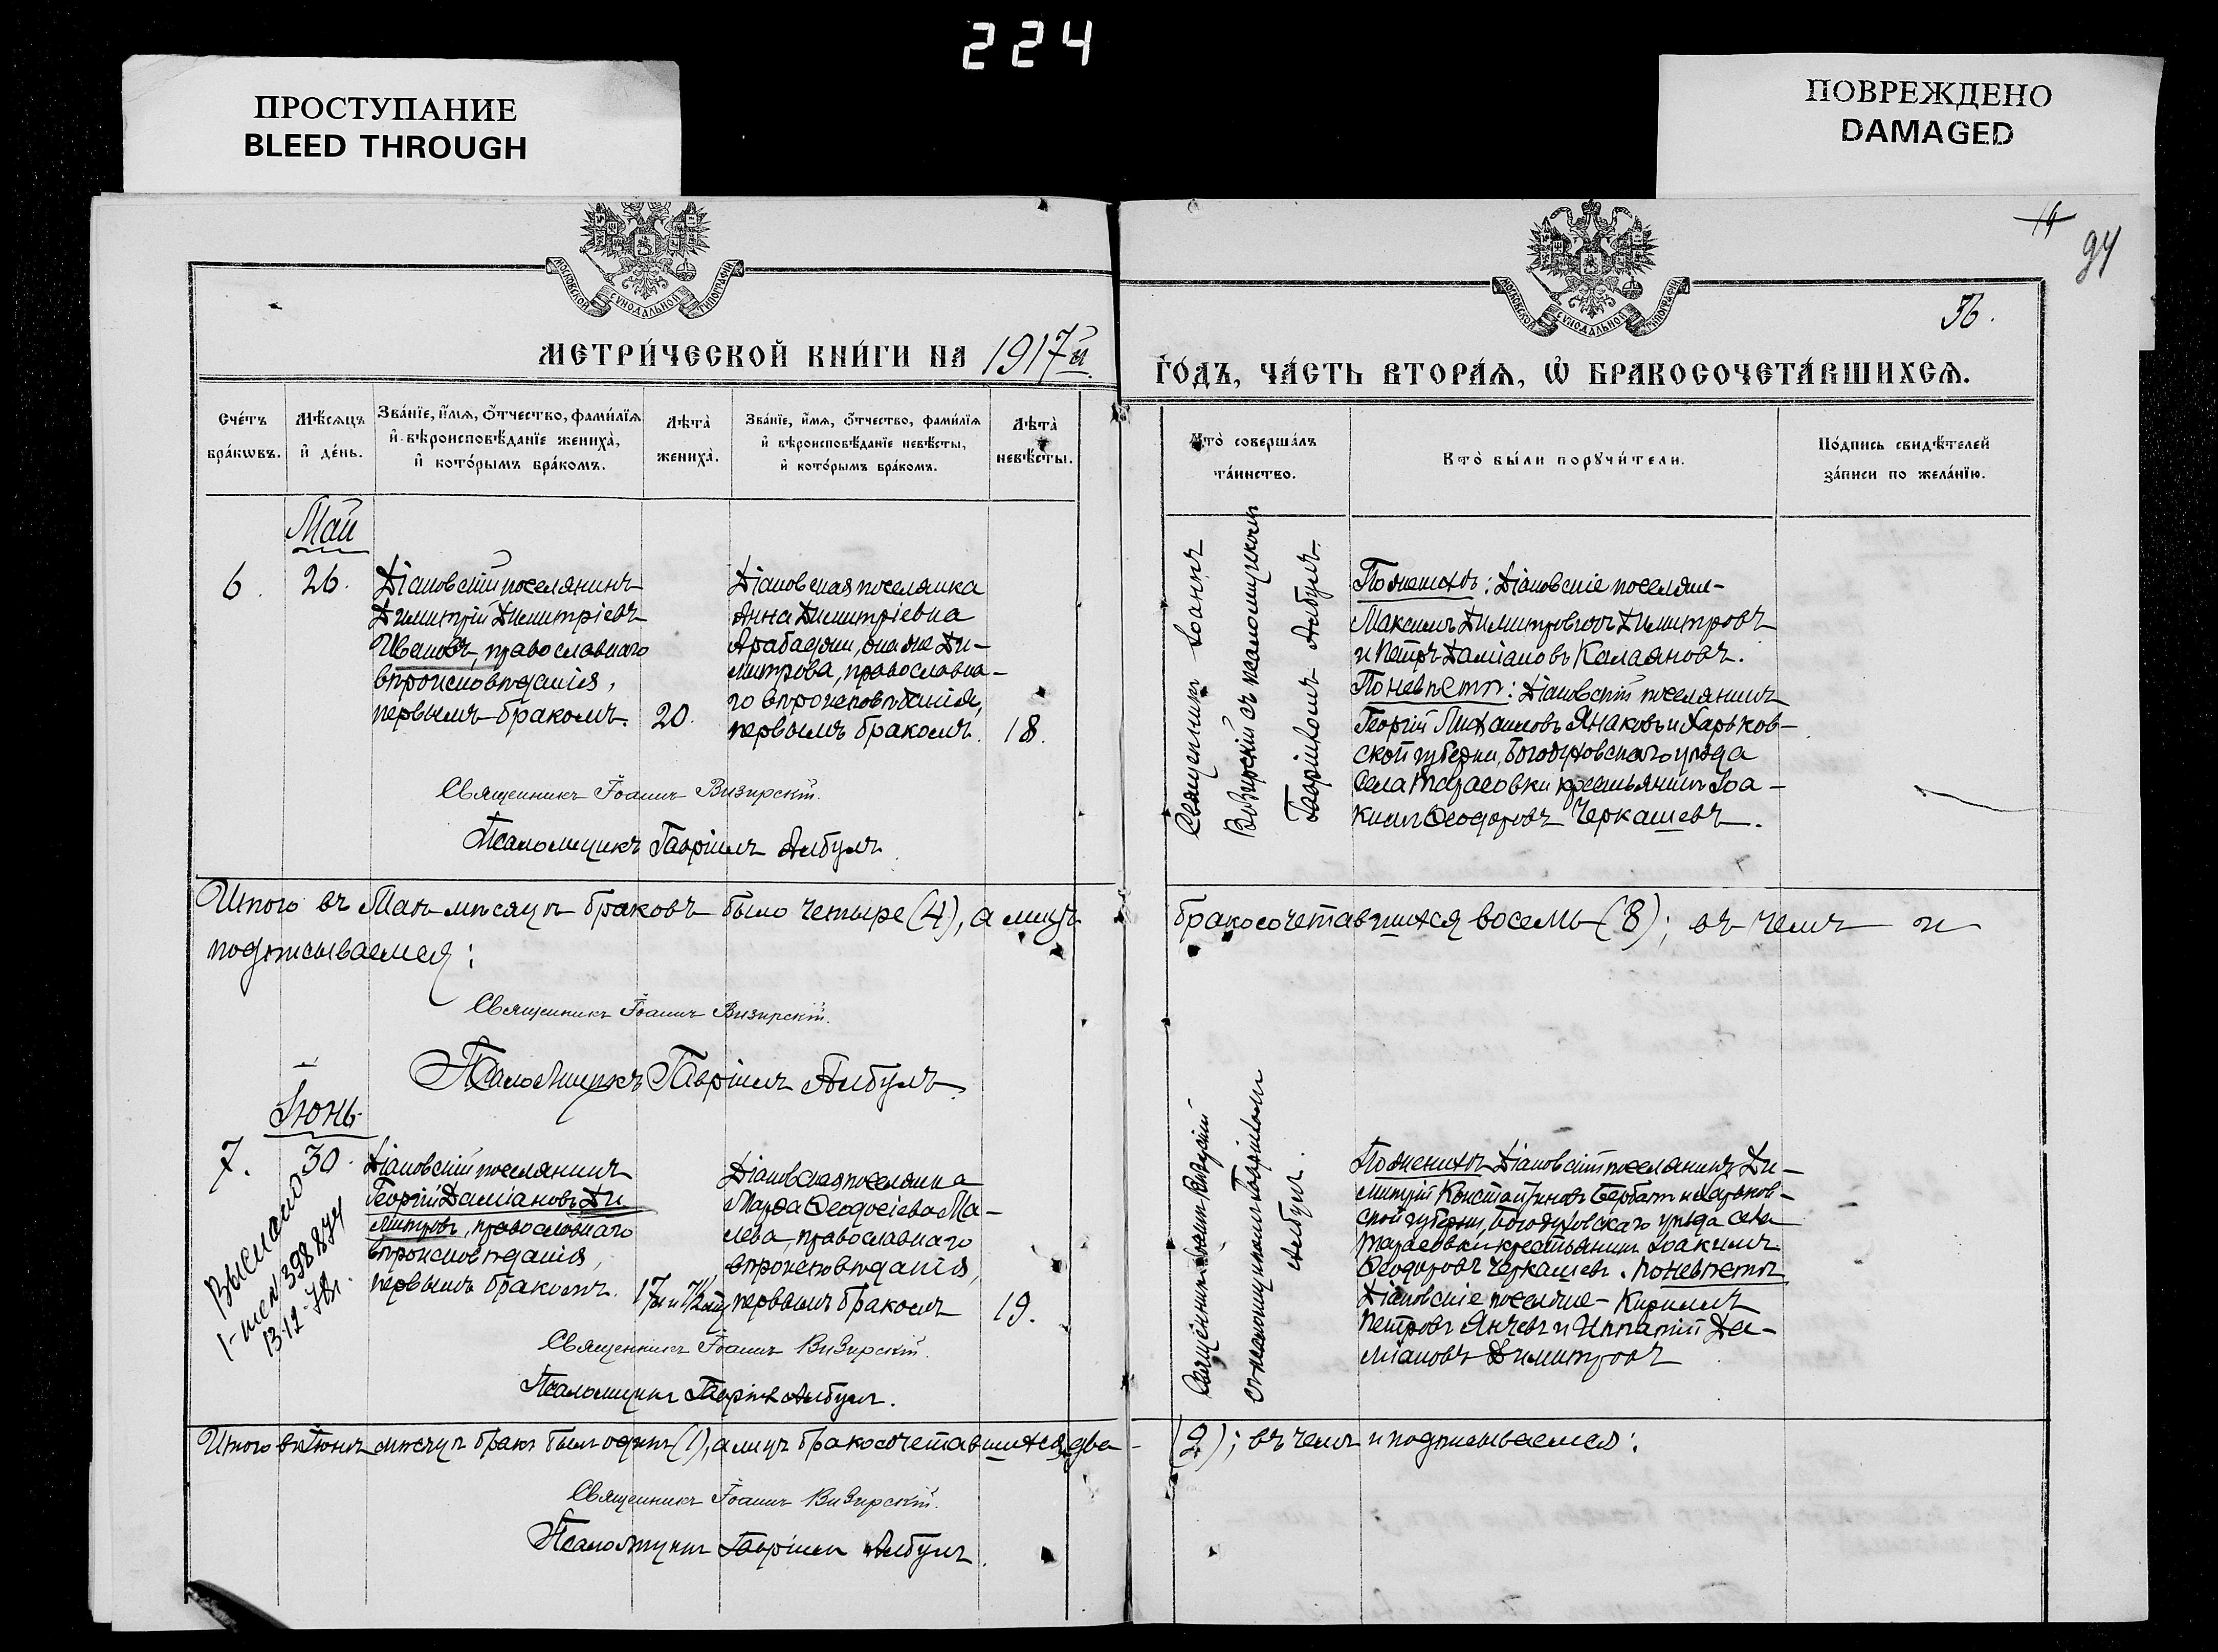 224
ПРОСТУПАНИЕ
BLEED THROUGH
ПОВРЕЖДЕНО
DAMAGED
94
36.
МОСКОВСКОЙ СѴНОДАЛЬНОЙ ТИПОГРАФІИ
МОСКОВСКОЙ СѴНОДАЛЬНОЙ ТИПОГРАФІИ
МЕТРИ́ЧЕСКОЙ КНИ́ГИ НА 1917й
ГО́ДЪ, ЧА́СТЬ ВТОРА́Я, Ѡ БРАКОСОЧЕТА́ВШИХСЯ.
Сче́тъ
бра́кѡвъ.
Мѣ́сяцъ
и҆ де́нь.
Зва́нїе, и҆́мя, ѻ҆́тчество, фами́лїя
и҆ вѣроисповѣ́данїе жениха̀,
и҆ кото́рымъ бра́комъ.
Лѣта̀
жениха̀.
Зва́нїе, и҆́мя, ѻ҆́тчество, фами́лїя
и҆ вѣроисповѣ́данїе невѣ́сты,
и҆ кото́рымъ бра́комъ.
Лѣта̀
невѣ́сты.
Кто̀ соверша́лъ
та́инство.
Кто̀ бы́ли порꙋчи́тели.
По́дпись свидѣ́телей
за́писи по жела́нїю.
Май
6.
26.
Діановскій поселянинъ
Димитрій Димитріевъ
Ивановъ, православнаго
вѣроисповѣданія,
первымъ бракомъ.
20.
Діановская поселянка
Анна Димитріевна
Арабаджи, она же Ди-
митрова, православна-
го вѣроисповѣданія,
первымъ бракомъ.
18.
Священникъ Іоаннъ
Визирскій съ псаломщикомъ
Гавріиломъ Албулъ.
По женихѣ: Діановскіе поселяне-
Максимъ Димитровъ Димитровъ
и Петръ Даміановъ Калаяновъ.
По невѣстѣ: Діановскій поселянинъ
Георгій Михаиловъ Янаковъ и Харьков-
ской губерніи, Богодуховскаго уѣзда
села Тарасовки крестьянинъ Іоа-
кимъ Ѳеодоровъ Черкашевъ.
Священникъ Іоаннъ Визирскій.
Псаломщикъ Гавріилъ Албулъ.
Итого въ Маѣ мѣсяцѣ браковъ было четыре (4), а лицъ
бракосочетавшихся восемь (8); въ чемъ и
подписываемся:
Священникъ Іоаннъ Визирскій.
Псаломщикъ Гавріилъ Албулъ.
Іюнь
7.
30.
Выслано
13.12.
Діановскій поселянинъ
Георгій Даміановъ Ди-
митровъ, православнаго
вѣроисповѣданія,
первымъ бракомъ.
Діановская поселянка
Марѳа Ѳеодосіева Ма-
лева, православнаго
вѣроисповѣданія,
первымъ бракомъ
19.
Священникъ Іоаннъ Визирскій
съ псаломщикомъ Гавріиломъ
Албулъ.
По женихѣ Діановскій поселянинъ Ди-
митрій Константиновъ Бербатъ и Харьков-
ской губерніи, Богодуховскаго уѣзда села
Тарасовки крестьянинъ Іоакимъ
Ѳеодоровъ Черкашевъ. По невѣстѣ
Діановскіе поселяне - Кириллъ
Петровъ Янчевъ и Ипатій Да-
міановъ Димитровъ
Священникъ Іоаннъ Визирскій.
Псаломщикъ Гавріилъ Албулъ.
Итого въ Іюнѣ мѣсяцѣ бракъ былъ одинъ (1), а лицъ бракосочетавшихся два -
(2); въ чемъ и подписываемся:
Священникъ Іоаннъ Визирскій.
Псаломщикъ Гавріилъ Албулъ.